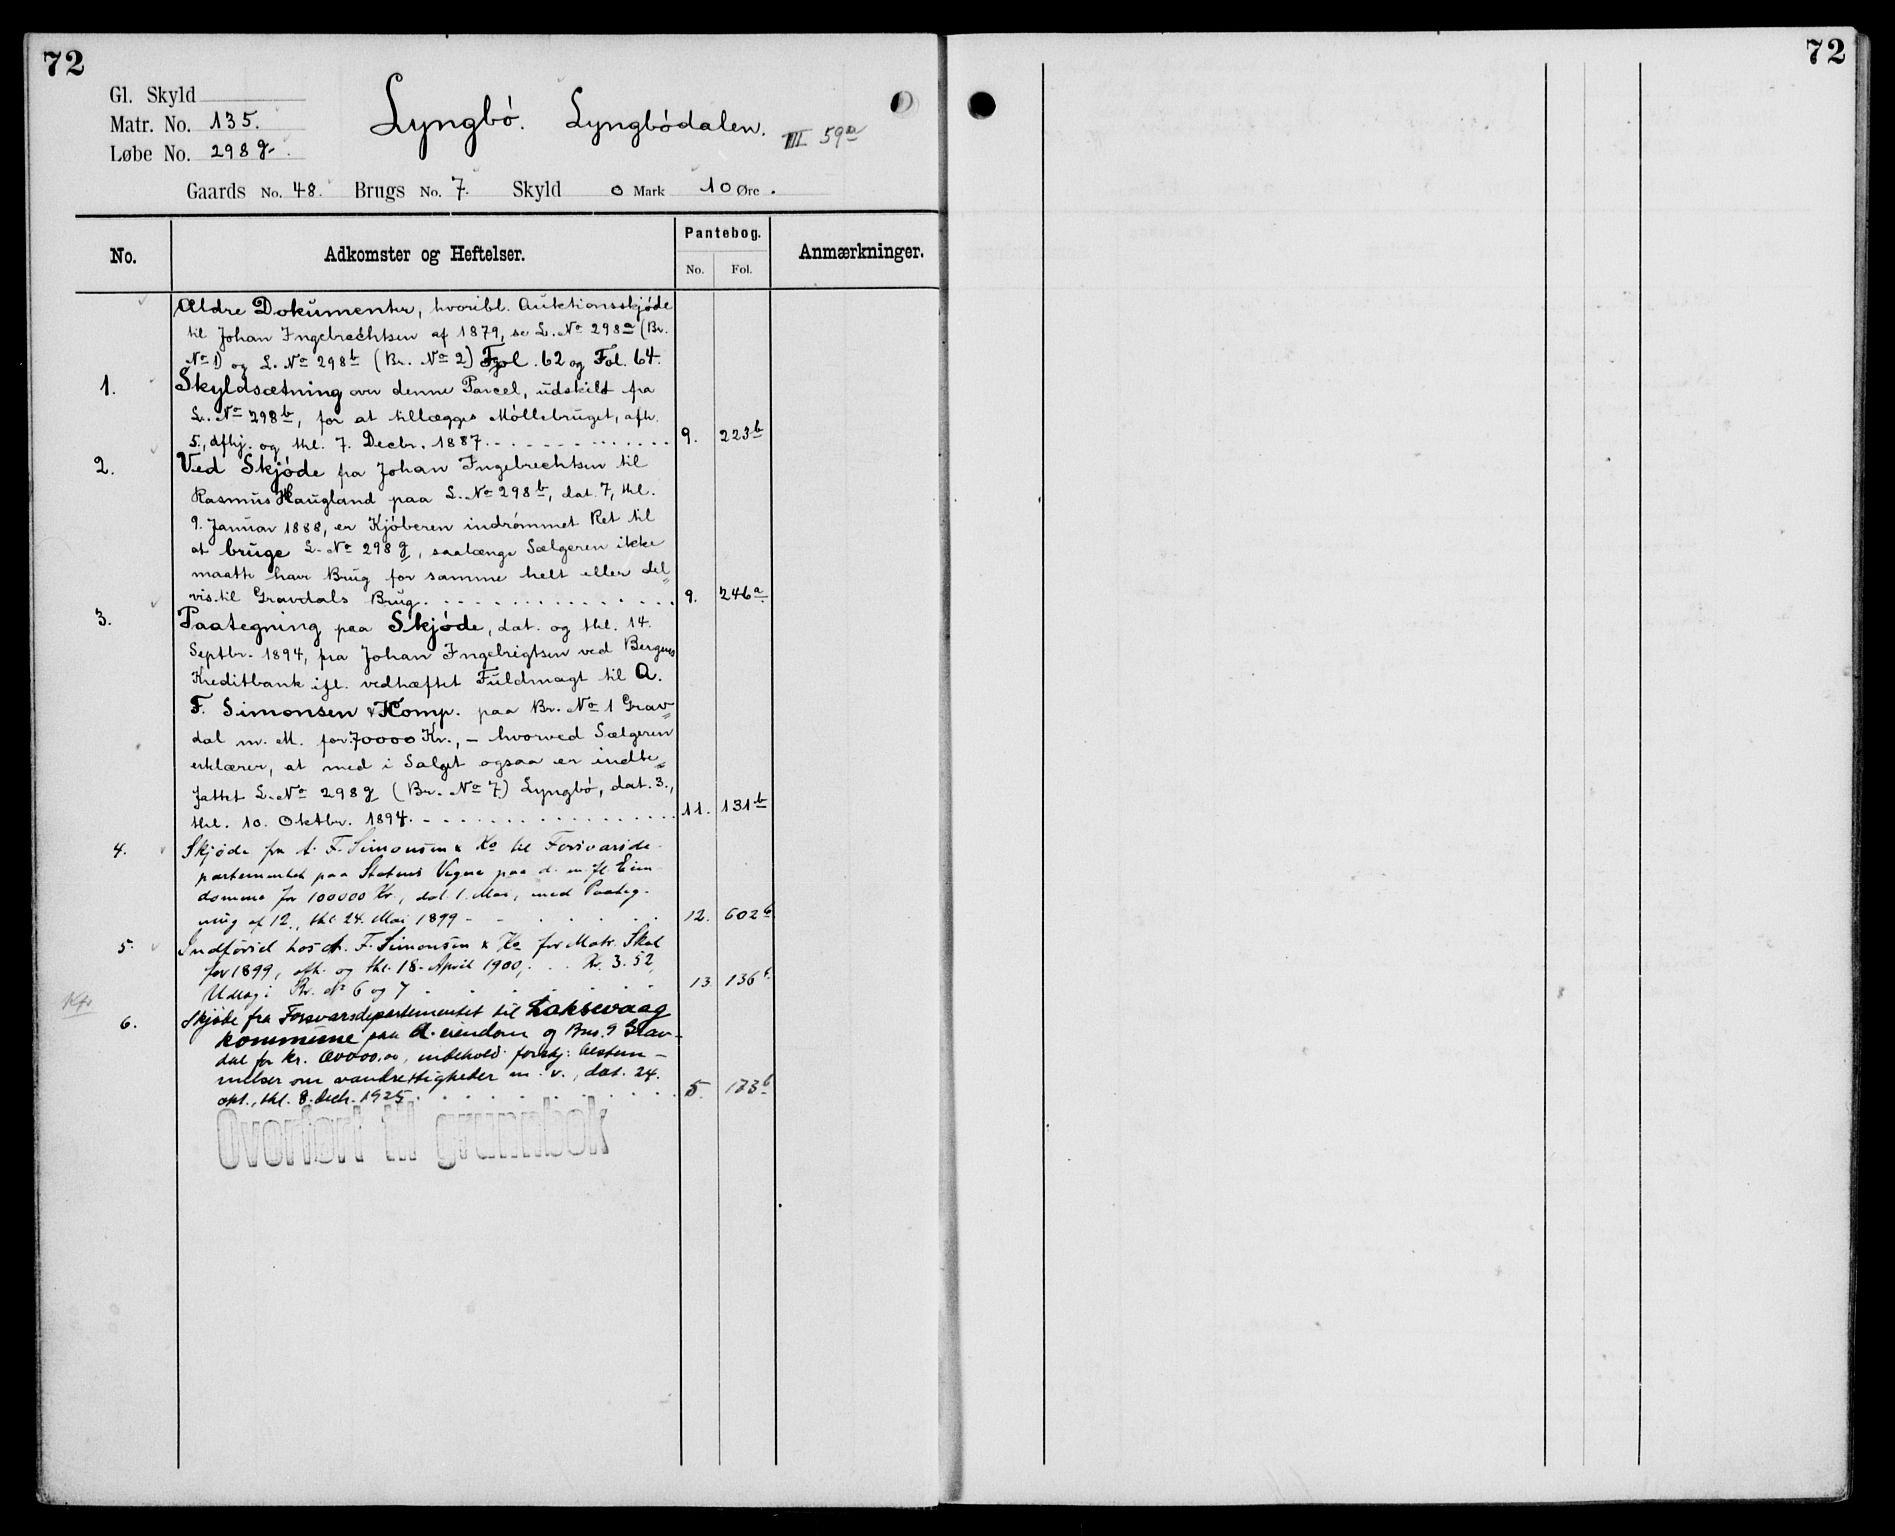 72
72
Gl. Skyld
Matr. No. 135.
Løbe No. 298 g.
Lyngbö. Lyngbödalen.
III 59a
Gaards No. 48. Brugs No. 7. Skyld 0 Mark 10 Øre.
No. Adkomster og Heftelser. Pantebog. No. Fol. Anmærkninger.
Ældre Dokumenter, hvoribl. Auktionsskjöde
til Johan Ingebrechtsen af 1879, se L. No 298a (Br.
No 1) og L. No 298b (Br. No 2) Fol. 62 og Fol. 64.
1. Skyldsætning over denne Parcel, udskilt fra
L. No 298b, for at tillægges Möllebruget, afh.
5., afhj. og thl. 7. Decbr. 1887. 9. 223b
2. Ved Skjöde fra Johan Ingebrechtsen til
Rasmus Haugland paa L. No 298b, dat. 7, thl.
9. Januar 1888, er Kjöberen indrömmet Ret til
at bruge L. No 298 g, saalænge Sælgeren ikke
maatte have Brug for samme helt eller del=
vis til Gravdals Brug. 9. 246a
3. Paategning paa Skjöde, dat. og thl. 14.
Septbr. 1894, fra Johan Ingebrigtsen ved Bergens
Kreditbank ifl. vedhæftet Fuldmagt til A.
F. Simonsen & Komp. paa Br. No 1 Grav=
dal m. M. for 70000 Kr., – hvorved Sælgeren
erklærer, at med i Salget ogsaa er indbe=
fattet L. No 298 g (Br. No 7) Lyngbö, dat. 3.,
thl. 10. Oktbr. 1894. 11. 131b
4. Skjøde fra A. F. Simonsen & Ko til Forsvarsde-
partementet paa Statens Vegne paa d. m. fl. Eien-
domme for 100000 Kr., dat. 1. Mai, med Paateg-
ning af 12., thl. 24. Mai 1899 12. 602b
5. Indførsel hos A. F. Simonsen & Ko for Matr. Skat
for 1899, afh. og thl. 18. April 1900, Kr. 3.52,
Udlæg i Br. No 6 og 7 13. 136
Kfr
6. Skjøte fra Forsvarsdepartementet til Laksevaag
kommune paa d. eiendom og Bns. 9 Grav-
dal for kr. 00000,00, indehold. forskj: bestem-
melser om vandrettigheder m. v., dat. 24.
okt., thl. 8. decb. 1925 5. 173b
Overført til grunnbok